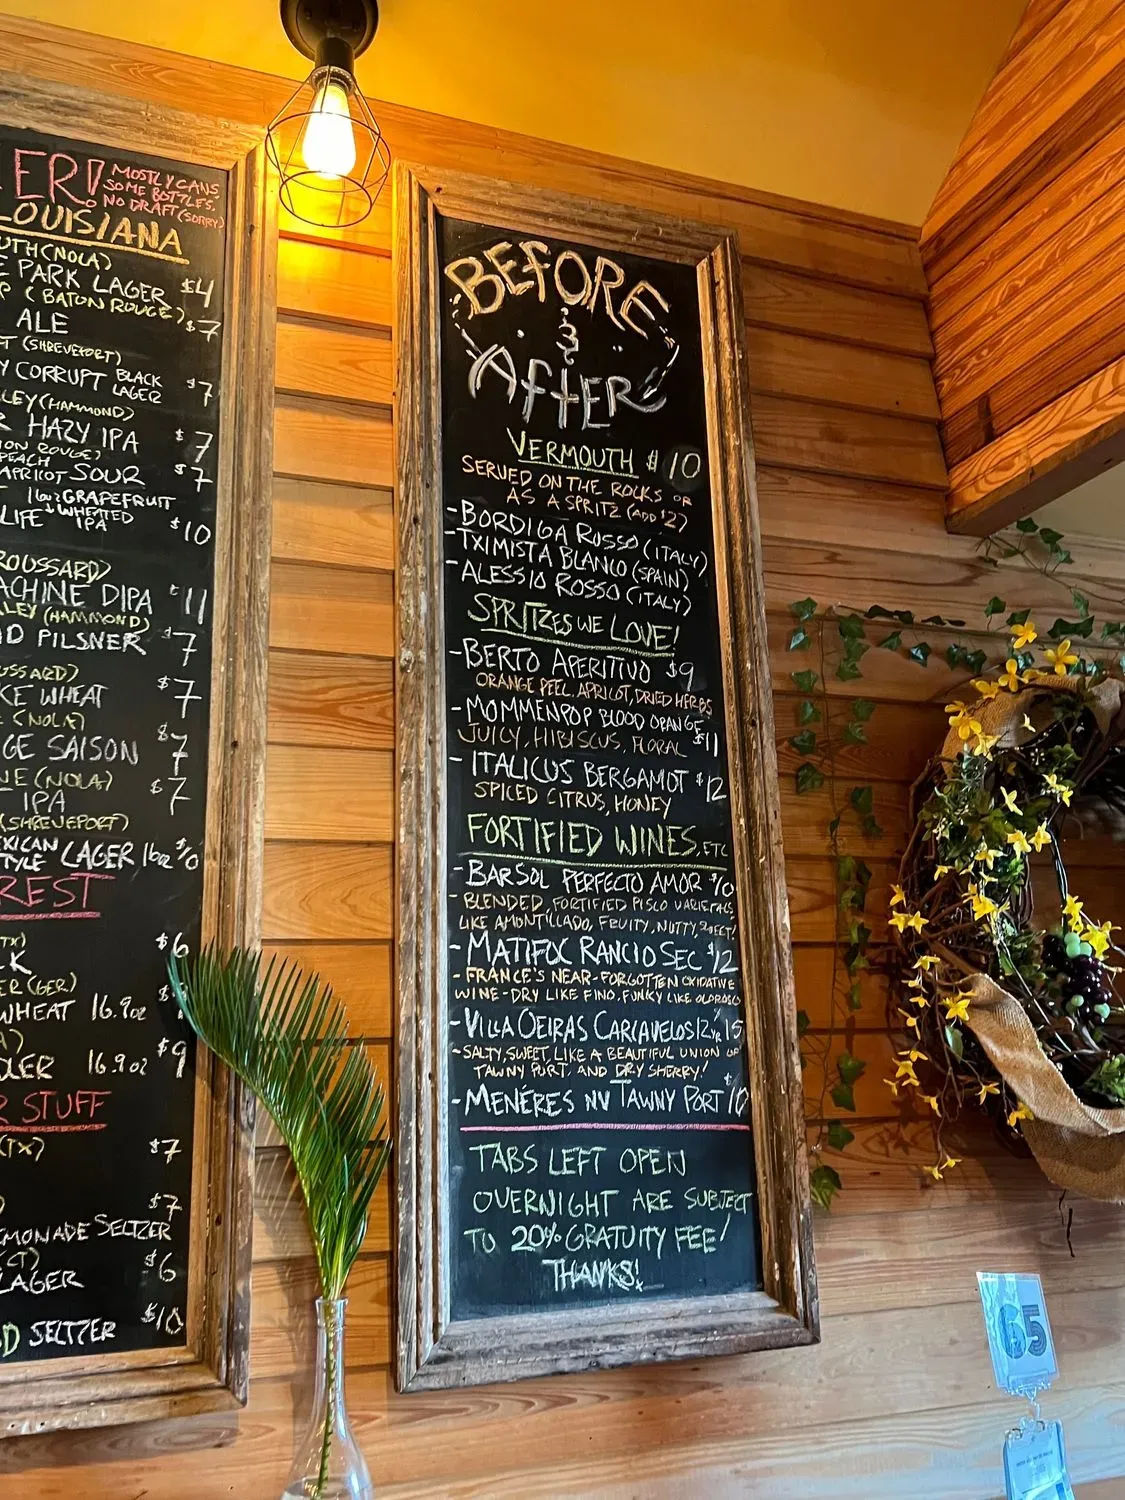 ER!
MOSTLY CANS
SOME BOTTLES,
NO DRAFT (SORRY)
LOUISIANA
(NOLA)
PARK LAGER $4
(BATON ROUGE)
ALE $7
(SHREVEPORT)
CORRUPT BLACK
LAGER $7
(HAMMOND)
HAZY IPA $7
PEACH
APRICOT SOUR $7
16oz GRAPEFRUIT
LIFE WHEATED
IPA $10
ROUSSARD)
ACHINE DIPA $11
LEY (HAMMOND)
PILSNER $7
USSARD)
KE WHEAT $7
(NOLA)
GE SAISON $7
NE (NOLA)
IPA $7
(SHREVEPORT)
XICAN
TYLE LAGER 16oz $10
REST
TX) $6
K
ER (GER)
WHEAT 16.9oz
A)
DLER 16.9oz $9
R STUFF
(TX) $7
$7
EMONADE SELTZER
CT) $6
LAGER
$10
D SELTZER
BEFORE
&
AFTER
VERMOUTH $10
SERVED ON THE ROCKS OR
AS A SPRITZ (ADD $2)
-BORDIGA ROSSO (ITALY)
-TXIMISTA BLANCO (SPAIN)
-ALESSIO ROSSO (ITALY)
SPRITZES WE LOVE!
-BERTO APERITIVO $9
ORANGE PEEL, APRICOT, DRIED HERBS
-MOMMENPOP BLOOD ORANGE
JUICY, HIBISCUS, FLORAL $11
- ITALICUS BERGAMOT $12
SPICED CITRUS, HONEY
FORTIFIED WINES, ETC
-BARSOL PERFECTO AMOR $10
-BLENDED, FORTIFIED PISCO VARIETALS
LIKE AMONTILLADO, FRUITY, NUTTY, SWEET!
-MATIFOC RANCIO SEC $12
-FRANCE'S NEAR-FORGOTTEN OXIDATIVE
WINE-DRY LIKE FINO, FUNKY LIKE OLOROSO
-VILLA OEIRAS CARCAVELOS 12yr 15
-SALTY, SWEET, LIKE A BEAUTIFUL UNION OF
TAWNY PORT, AND DRY SHERRY!
-MENÉRES NV TAWNY PORT $10
TABS LEFT OPEN
OVERNIGHT ARE SUBJECT
TO 20% GRATUITY FEE!
THANKS!
65